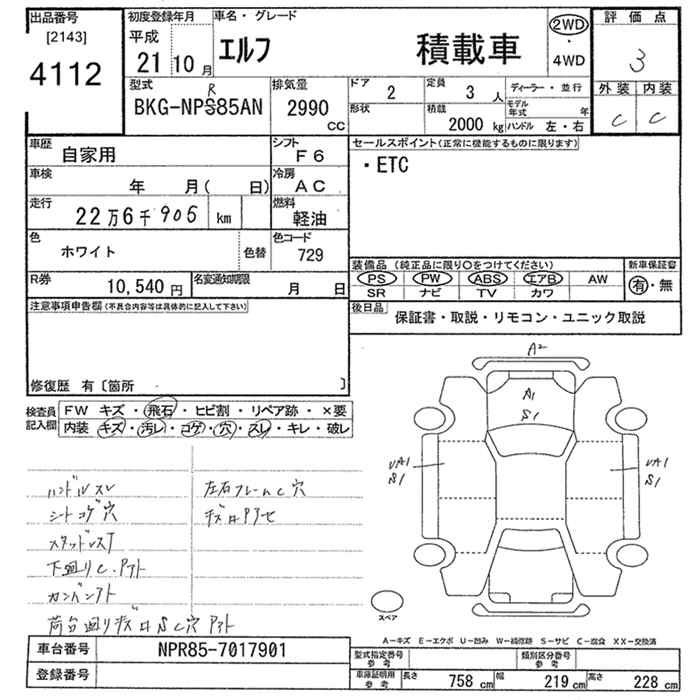 出品番号
[2143]
4112
初度登録年月
平成
21 10月
車名・グレード
エルフ 積載車
2WD
・
4WD
評価点
3
外装 内装
C C
型式
R
BKG-NPS85AN
排気量
2990
CC
ドア 2
定員 3人
ディーラー・並行
形状
積載 2000 kg
モデル年式 年
ハンドル 左・右
車歴 自家用
シフト F6
車検 年 月( 日)
冷房 AC
走行 22万6千905 km
燃料 軽油
色 ホワイト 色替
色コード 729
R券 10,540円
名変通知期限 月 日
セールスポイント(正常に機能するものに限ります)
・ETC
装備品(純正品に限り○をつけてください)
PS PW ABS エアB AW
SR ナビ TV カワ
新車保証書
有・無
後日品 保証書・取説・リモコン・ユニック取説
注意事項申告欄(不具合内容等は具体的に記入して下さい)
修復歴 有〔箇所 〕
検査員記入欄
FW キズ・飛石・ヒビ割・リペア跡・×要
内装 キズ・汚レ・コゲ・穴・スレ・キレ・破レ
ハンドルスレ
シートコゲ穴
スタッドレスT
下廻りC.アト
カンバンアト
荷台廻りキズ凹SC穴アト
左右フレームC穴
A2
A1
S1
UA1
S1
UA1
S1
スペア
A-キズ E-エクボ U-凹み W-補修跡 S-サビ C-腐食 XX-交換済
車台番号 NPR85-7017901
登録番号
型式指定番号 参考
類別区分番号 参考
車庫証明用 参考
長さ 758 cm 幅 219 cm 高さ 228 cm